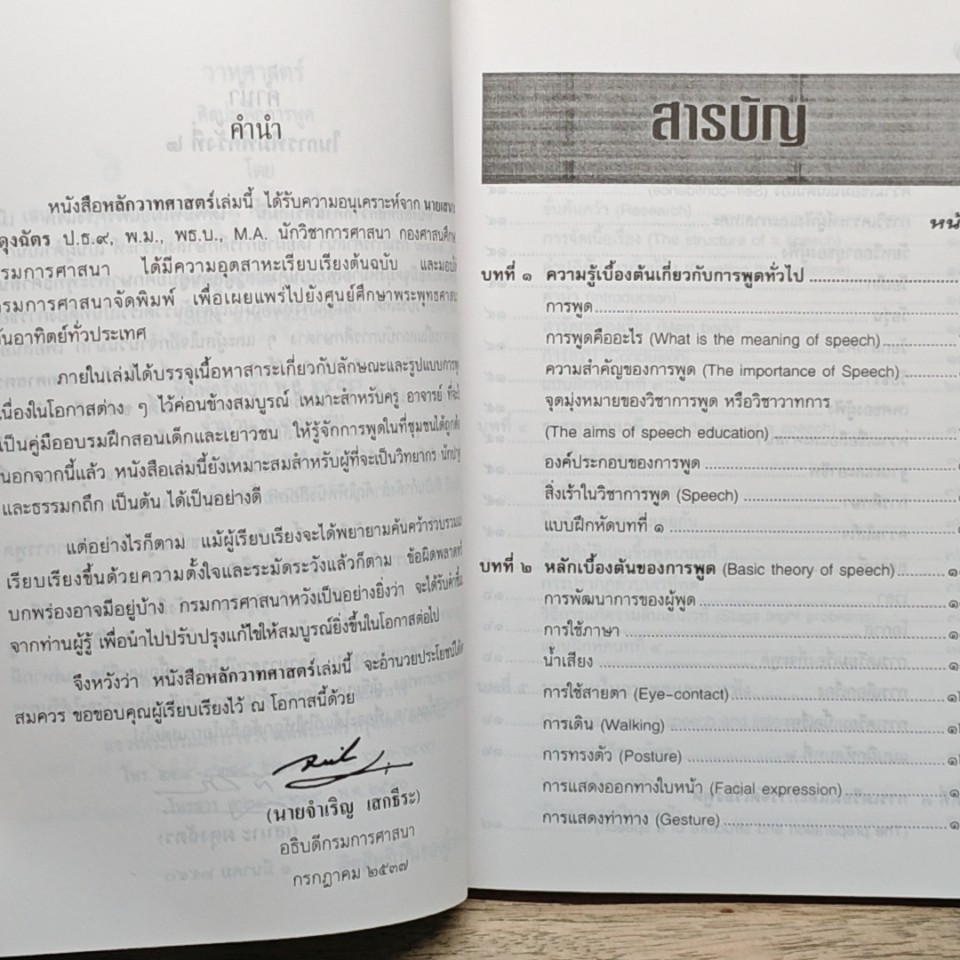 คำนำ
หนังสือหลักวาทศาสตร์เล่มนี้ ได้รับความอนุเคราะห์จาก
ป.ธ.๙, พ.ม., พธ.บ., M.A. นักวิชาการศาสนา กองศาสนศึกษา
กรมการศาสนา ได้มีความอุตสาหะเรียบเรียงต้นฉบับ และมอบให้
กรมการศาสนาจัดพิมพ์ เพื่อเผยแพร่ไปยังศูนย์ศึกษาพระพุทธศาสนา
วันอาทิตย์ทั่วประเทศ
ภายในเล่มได้บรรจุเนื้อหาสาระเกี่ยวกับลักษณะและรูปแบบการพูด
เนื่องในโอกาสต่าง ๆ ไว้ค่อนข้างสมบูรณ์ เหมาะสำหรับครู อาจารย์ ที่จะใช้
เป็นคู่มืออบรมฝึกสอนเด็กและเยาวชน ให้รู้จักการพูดในที่ชุมชนได้ถูกต้อง
นอกจากนี้แล้ว หนังสือเล่มนี้ยังเหมาะสมสำหรับผู้ที่จะเป็นวิทยากร
และธรรมกถึก เป็นต้น ได้เป็นอย่างดี
แต่อย่างไรก็ตาม แม้ผู้เรียบเรียงจะได้พยายามค้นคว้ารวบรวมและ
เรียบเรียงขึ้นด้วยความตั้งใจและระมัดระวังแล้วก็ตาม ข้อผิดพลาด
บกพร่องอาจมีอยู่บ้าง กรมการศาสนาหวังเป็นอย่างยิ่งว่า จะได้รับคำ
จากท่านผู้รู้ เพื่อนำไปปรับปรุงแก้ไขให้สมบูรณ์ยิ่งขึ้นในโอกาสต่อไป
จึงหวังว่า หนังสือหลักวาทศาสตร์เล่มนี้ จะอำนวยประโยชน์ได้
สมควร ขอขอบคุณผู้เรียบเรียงไว้ ณ โอกาสนี้ด้วย
(นายจำเริญ เสกธีระ)
อธิบดีกรมการศาสนา
กรกฎาคม ๒๕๓๗
สารบัญ
หน้า
บทที่ ๑ ความรู้เบื้องต้นเกี่ยวกับการพูดทั่วไป
การพูด
การพูดคืออะไร (What is the meaning of speech)
ความสำคัญของการพูด (The importance of Speech)
จุดมุ่งหมายของวิชาการพูด หรือวิชาวาทการ
(The aims of speech education)
องค์ประกอบของการพูด
สิ่งเร้าในวิชาการพูด (Speech)
แบบฝึกหัดบทที่ ๑
บทที่ ๒ หลักเบื้องต้นของการพูด (Basic theory of speech)
การพัฒนาการของผู้พูด
การใช้ภาษา
น้ำเสียง
การใช้สายตา (Eye-contact)
การเดิน (Walking)
การทรงตัว (Posture)
การแสดงออกทางใบหน้า (Facial expression)
การแสดงท่าทาง (Gesture)